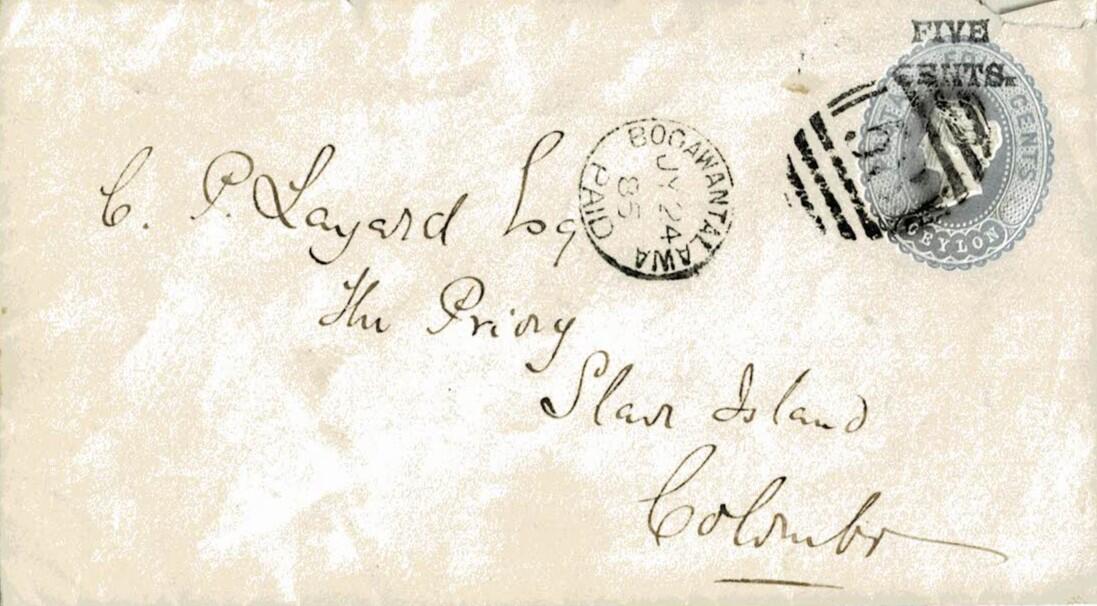 FIVE
CENTS.
CENTS
CEYLON
BOGAWANTALAWA
PAID
JY 24
85
C. P. Layard Esq
The Priory
Slave Island
Colombo